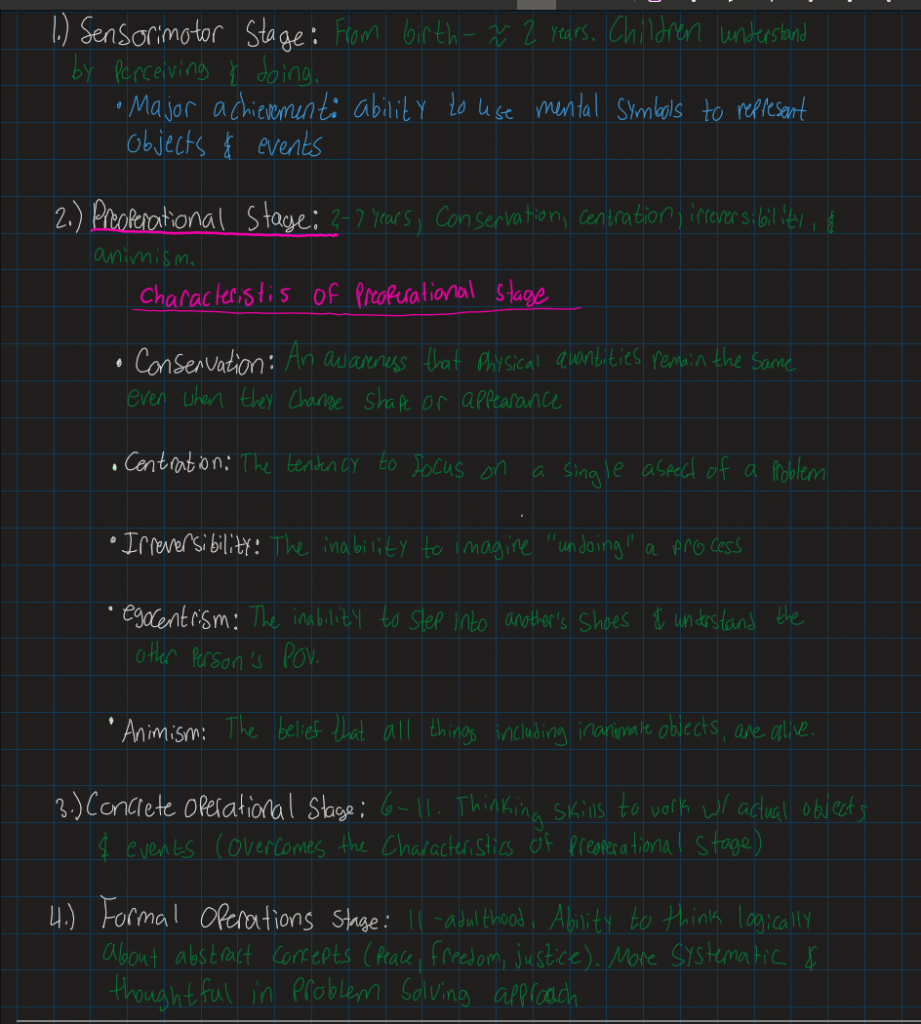 1.) Sensorimotor Stage: From birth - ≈ 2 years. Children understand
by perceiving & doing.
• Major achievement: ability to use mental symbols to represent
objects & events
2.) Preoperational Stage: 2-7 years, Conservation, centration, irreversibility, &
animism.
Characteristis of Preoperational Stage
• Conservation: An awareness that physical quantities remain the same
even when they change shape or appearance
• Centration: The tendency to focus on a single aspect of a problem
• Irreversibility: The inability to imagine "undoing" a process
• egocentrism: The inability to step into another's shoes & understand the
other person's POV.
• Animism: The belief that all things including inanimate objects, are alive.
3.) Concrete operational Stage: 6-11. Thinking skills to work w/ actual objects
& events (overcomes the characteristics of preoperational stage)
4.) Formal Operations Stage: 11-adulthood. Ability to think logically
about abstract concepts (Peace, freedom, justice). More systematic &
thoughtful in problem solving approach